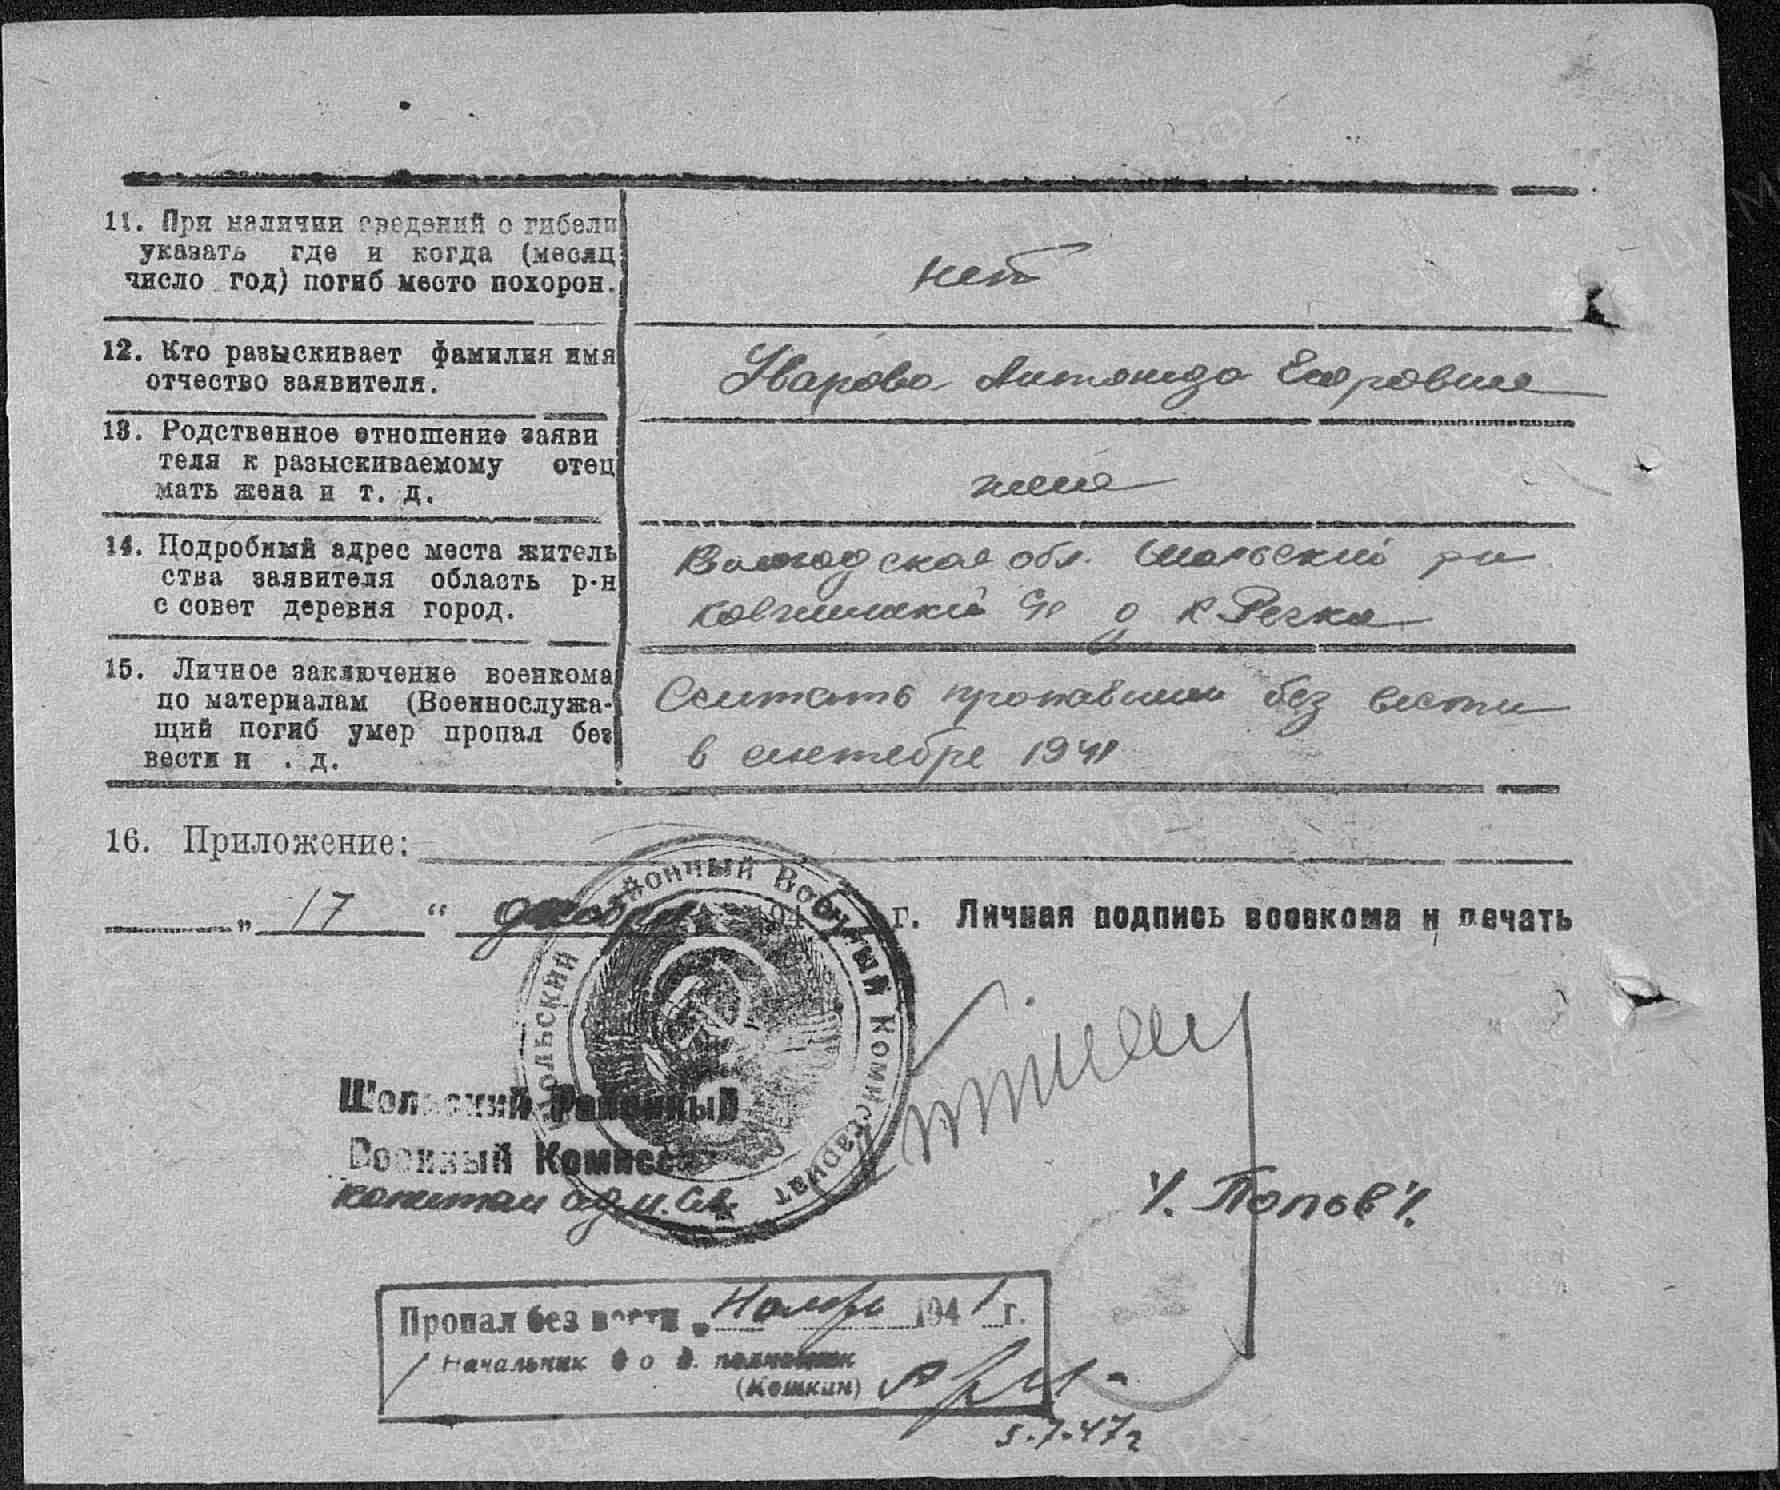 11. При наличии сведений о гибели
указать где и когда (месяц
число год) погиб место похорон.
нет
12. Кто разыскивает фамилия имя
отчество заявителя.
Уварова Антонида Егоровна
13. Родственное отношение заяви
теля к разыскиваемому отец
мать жена и т. д.
жена
14. Подробный адрес места житель
ства заявителя области р-н
с совет деревня город.
Вологодская обл. Шольский рн
с/с д. Речка
15. Личное заключение военкома
по материалам (Военнослужа-
щий погиб умер пропал без
вести и . д.
Считать пропавшим без вести
в сентябре 1941
16. Приложение:
„ 17 “ декабря 194 г. Личная подпись военкома и печать
Шольский Районный Военный Комиссариат
Шольский Районный
Военный Комиссар
капитан адм. сл.
/. Попов /.
Пропал без вести „ Ноябрь 1941 г.
Начальник 6 о
(Кошкин)
5.7.47г